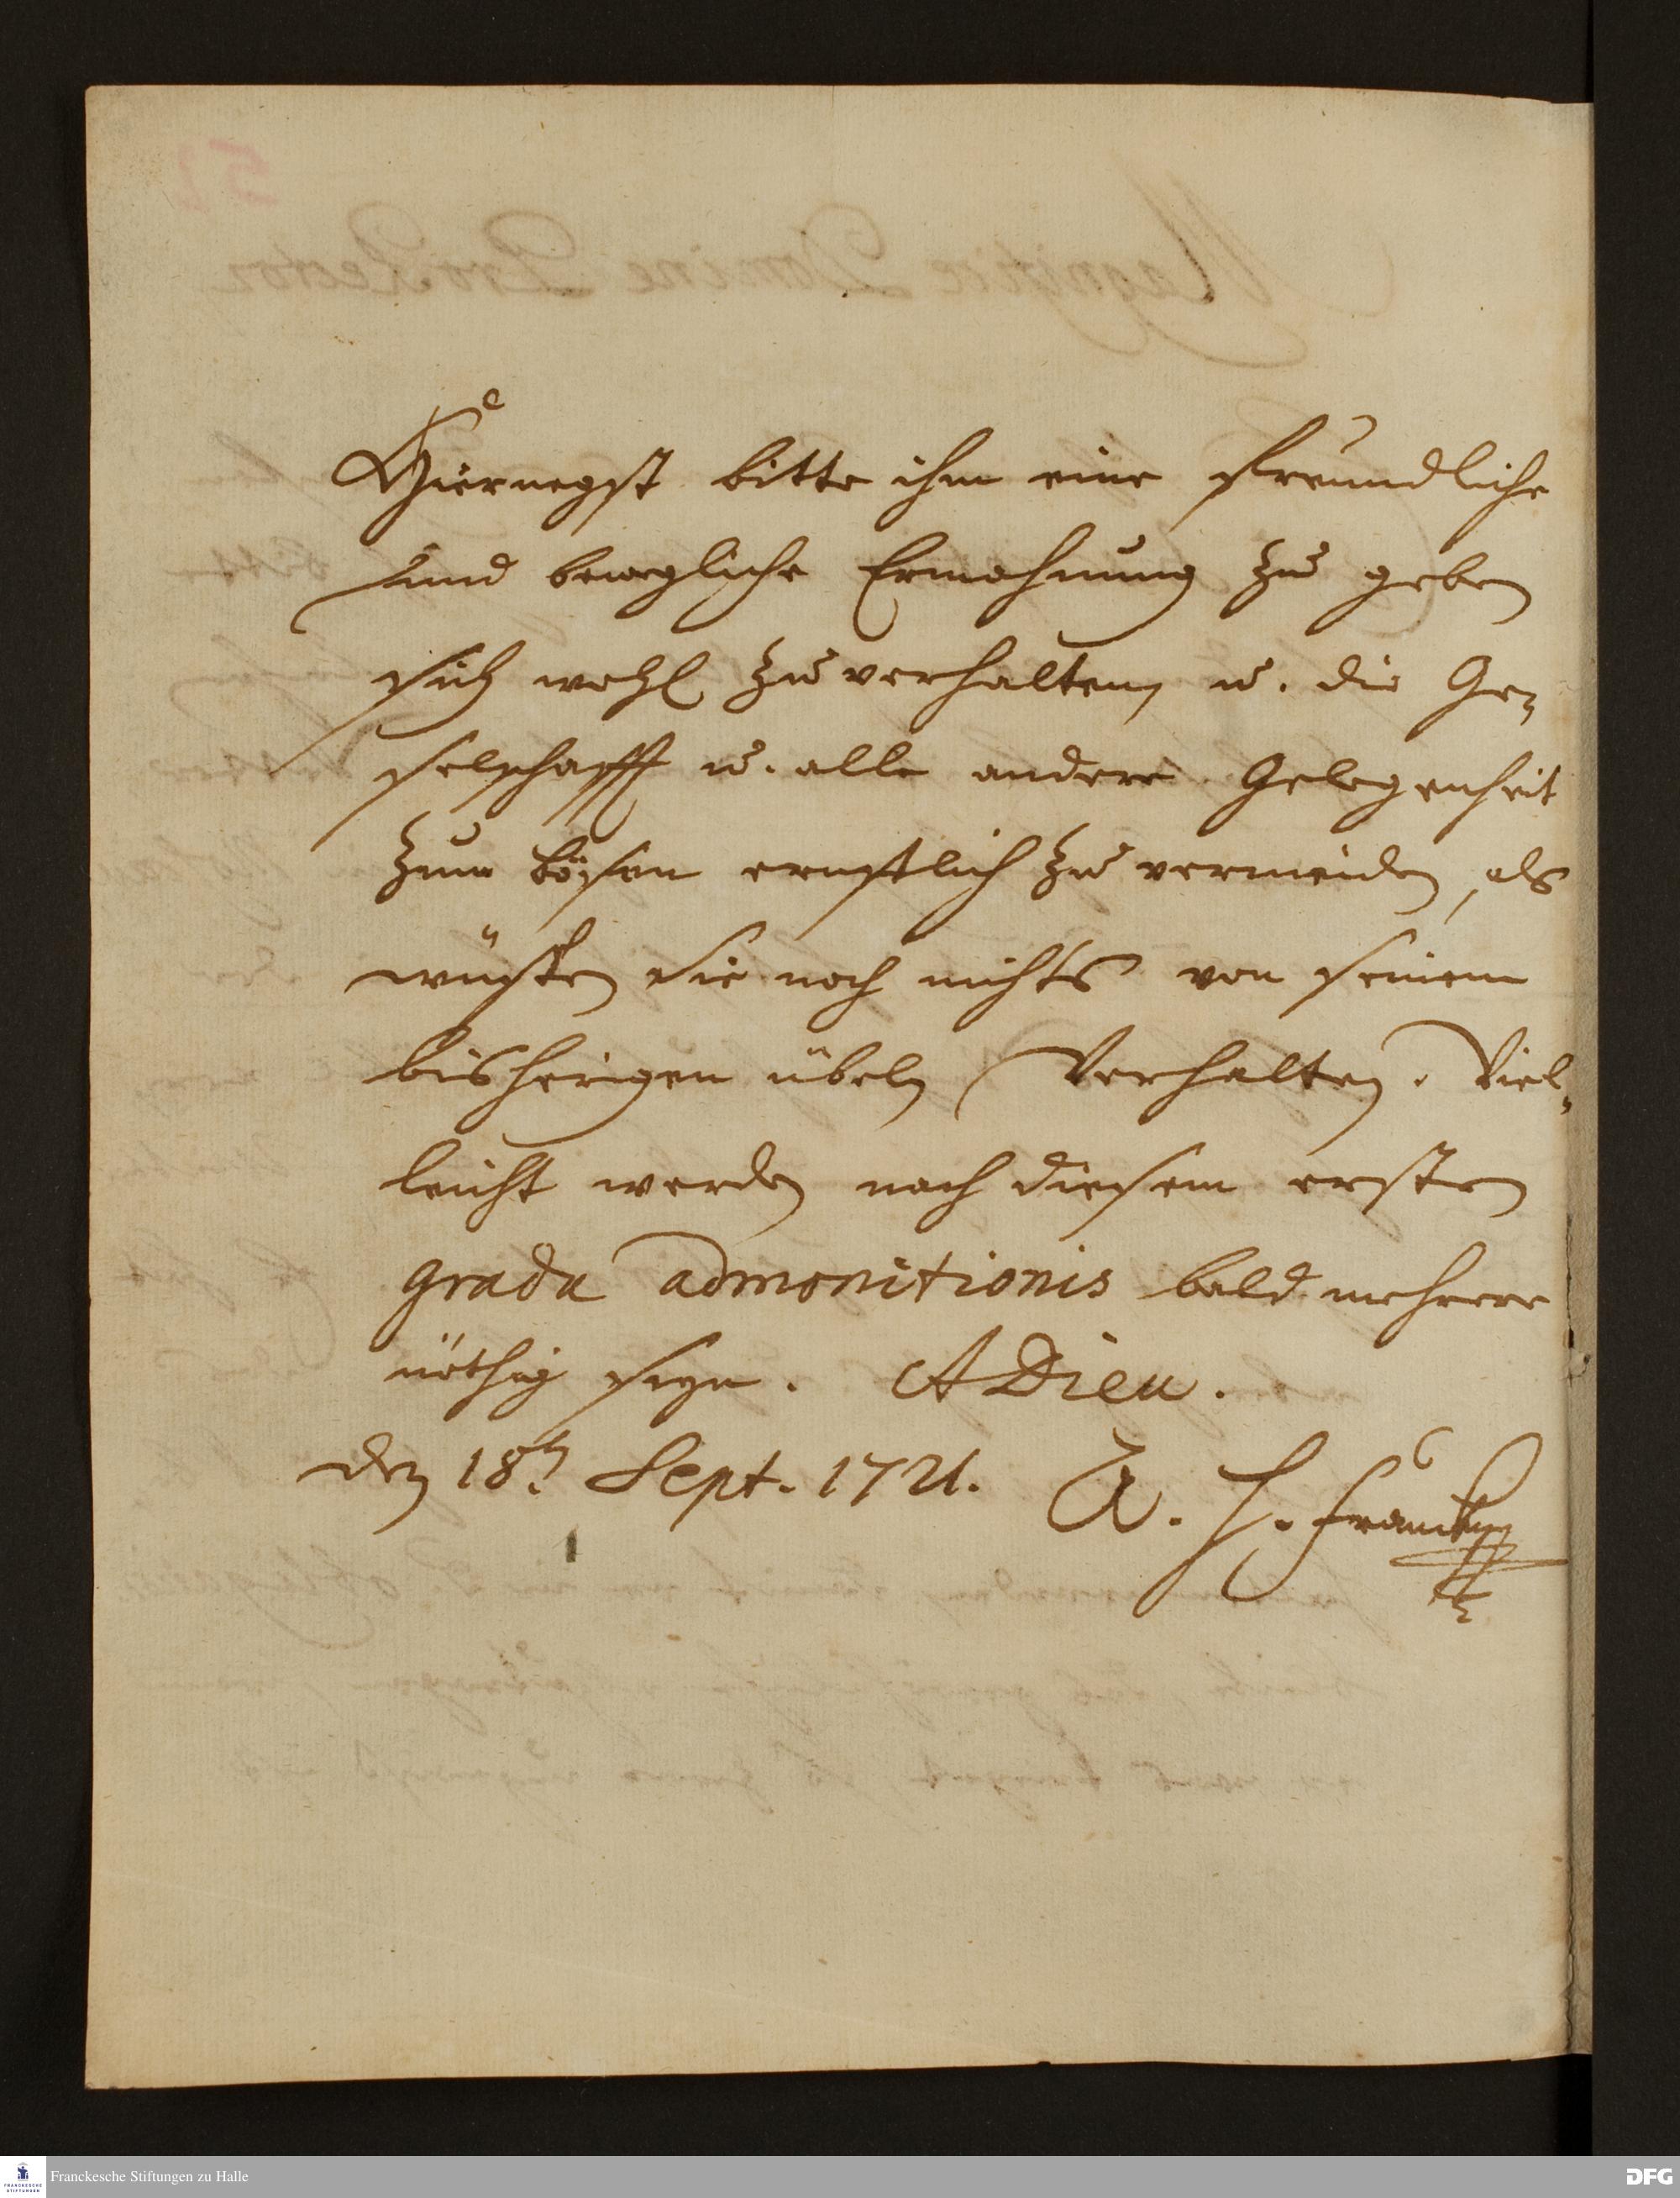 Hiernegst bitte ihm eine freundliche
und bewegliche Ermahnung zu geben
sich wohl zu verhalten, u. die Ge-
selschafft u. alle andere Gelegenheit
zum bösen ernstlich zu vermeiden, als
wüsten sie noch nichts von seinem
bisherigen übeln Verhalten. Viel-
leicht werden nach diesem ersten
gradu admonitionis bald mehrere
nöthig seyn. A Dieu.
den 18t. Sept. 1721. A. H. Francke
Franckesche Stiftungen zu Halle
FRANCKESCHE
STIFTUNGEN
DFG